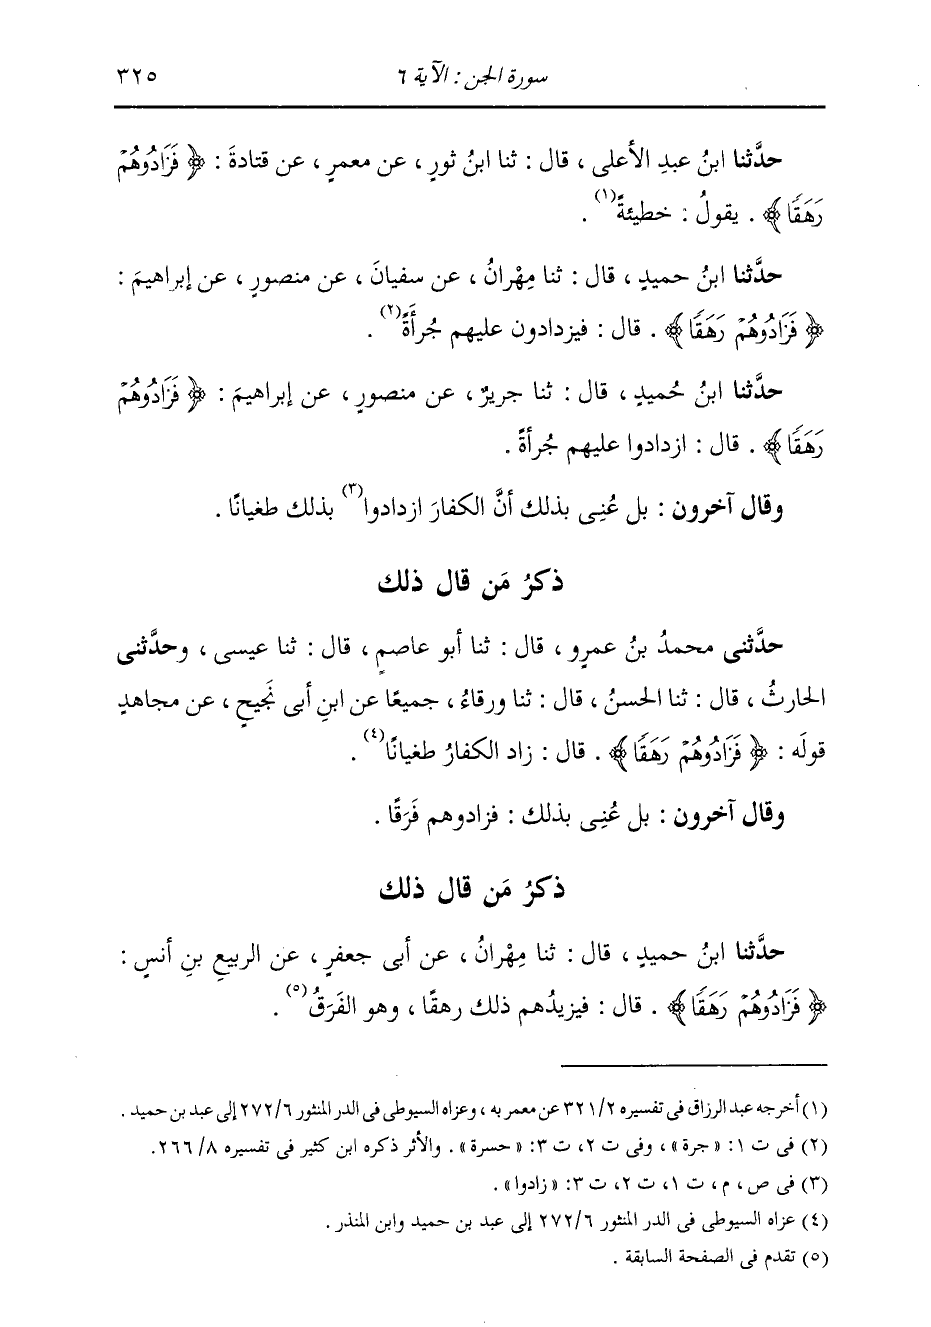 سورة الجن : الآية ٦ ٣٢٥
حدَّثنا ابنُ عبدِ الأعلى ، قال : ثنا ابنُ ثورٍ ، عن معمرٍ ، عن قتادةَ : ﴿ فَزَادُوهُمْ
رَهَقًا ﴾ . يقولُ : خطيئةً(١) .
حدَّثنا ابنُ حميدٍ ، قال : ثنا مِهْرانُ ، عن سفيانَ ، عن منصورٍ ، عن إبراهيمَ :
﴿ فَزَادُوهُمْ رَهَقًا ﴾ . قال : فيزدادون عليهم جُرأَةً(٢) .
حدَّثنا ابنُ حُميدٍ ، قال : ثنا جريرٌ ، عن منصورٍ ، عن إبراهيمَ : ﴿ فَزَادُوهُمْ
رَهَقًا ﴾ . قال : ازدادوا عليهم جُرأةً .
وقال آخرون : بل عُنِى بذلك أنَّ الكفارَ ازدادوا(٣) بذلك طغيانًا .
ذكرُ مَن قال ذلك
حدَّثنى محمدُ بنُ عمرٍو ، قال : ثنا أبو عاصمٍ ، قال : ثنا عيسى ، وحدَّثنى
الحارثُ ، قال : ثنا الحسنُ ، قال : ثنا ورقاءُ ، جميعًا عن ابنِ أبى نَجيحٍ ، عن مجاهدٍ
قولَه : ﴿ فَزَادُوهُمْ رَهَقًا ﴾ . قال : زاد الكفارُ طغيانًا(٤) .
وقال آخرون : بل عُنِى بذلك : فزادوهم فَرَقًا .
ذكرُ مَن قال ذلك
حدَّثنا ابنُ حميدٍ ، قال : ثنا مِهْرانُ ، عن أبى جعفرٍ ، عن الربيعِ بنِ أنسٍ :
﴿ فَزَادُوهُمْ رَهَقًا ﴾ . قال : فيزيدُهم ذلك رهقًا ، وهو الفَرَقُ(٥) .
(١) أخرجه عبد الرزاق فى تفسيره ٣٢١/٢ عن معمر به ، وعزاه السيوطى فى الدر المنثور ٢٧٢/٦ إلى عبد بن حميد .
(٢) فى ت ١: «جرة» ، وفى ت ٢، ت ٣: «حسرة» . والأثر ذكره ابن كثير فى تفسيره ٢٦٦/٨.
(٣) فى ص ، م ، ت ١، ت ٢، ت ٣: «زادوا» .
(٤) عزاه السيوطى فى الدر المنثور ٢٧٢/٦ إلى عبد بن حميد وابن المنذر .
(٥) تقدم فى الصفحة السابقة .